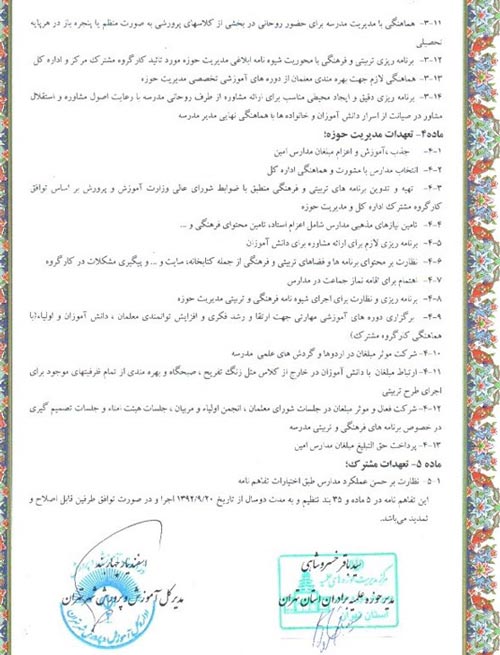 ۳-۱۱- هماهنگی با مدیریت مدرسه برای حضور روحانی در بخشی از کلاسهای پرورشی به صورت منظم یا پنجره باز در هرپایه
تحصیلی
۳-۱۲- برنامه ریزی تربیتی و فرهنگی با محوریت شیوه نامه ابلاغی مدیریت حوزه مورد تائید کارگروه مشترک مرکز و اداره کل
۳-۱۳- هماهنگی لازم جهت بهره مندی معلمان از دوره های آموزشی تخصصی مدیریت حوزه
۳-۱۴- برنامه ریزی دقیق و ایجاد محیطی مناسب برای ارائه مشاوره از طرف روحانی مدرسه با رعایت اصول مشاوره و استقلال
مشاور در صیانت از اسرار دانش آموزان و خانواده ها با هماهنگی نهایی مدیر مدرسه
ماده۴- تعهدات مدیریت حوزه:
۴-۱- جذب ،آموزش و اعزام مبلغان مدارس امین
۴-۲- انتخاب مدارس با مشورت و هماهنگی اداره کل
۴-۳- تهیه و تدوین برنامه های تربیتی و فرهنگی منطبق با ضوابط شورای عالی وزارت آموزش و پرورش بر اساس توافق
کارگروه مشترک اداره کل و مدیریت حوزه
۴-۴- تامین نیازهای مذهبی مدارس شامل اعزام استاد، تامین محتوای فرهنگی و ...
۴-۵- برنامه ریزی لازم برای ارائه مشاوره برای دانش آموزان
۴-۶- نظارت بر محتوای برنامه ها و فضاهای تربیتی و فرهنگی از جمله کتابخانه، سایت و ... و پیگیری مشکلات در کارگروه
۴-۷- اهتمام برای اقامه نماز جماعت در مدارس
۴-۸- برنامه ریزی و نظارت برای اجرای شیوه نامه فرهنگی و تربیتی مدیریت حوزه
۴-۹- برگزاری دوره های آموزشی مهارتی جهت ارتقا و رشد فکری و افزایش توانمندی معلمان ، دانش آموزان و اولیاء(با
هماهنگی کارگروه مشترک)
۴-۱۰- شرکت موثر مبلغان در اردوها و گردش های علمی مدرسه
۴-۱۱- ارتباط مبلغان با دانش آموزان در خارج از کلاس مثل زنگ تفریح ، صبحگاه و بهره مندی از تمام ظرفیتهای موجود برای
اجرای طرح تربیتی
۴-۱۲- شرکت فعال و موثر مبلغان در جلسات شورای معلمان ، انجمن اولیاء و مربیان ، جلسات هیئت امناء و جلسات تصمیم گیری
در خصوص برنامه های فرهنگی و تربیتی مدرسه
۴-۱۳- پرداخت حق التبلیغ مبلغان مدارس امین
ماده ۵- تعهدات مشترک:
۵-۱- نظارت بر حسن عملکرد مدارس طبق اختیارات تفاهم نامه
این تفاهم نامه در ۵ ماده و ۳۵ بند تنظیم و به مدت دوسال از تاریخ ۱۳۹۲/۹/۲۰ اجرا و در صورت توافق طرفین قابل اصلاح و
تمدید می‌باشد.
سیدباقر خسروشاهی
مدیر حوزه علمیه برادران استان تهران
استان تهران
اسفندیار چهاربند
مدیر کل آموزش و پرورش شهر تهران